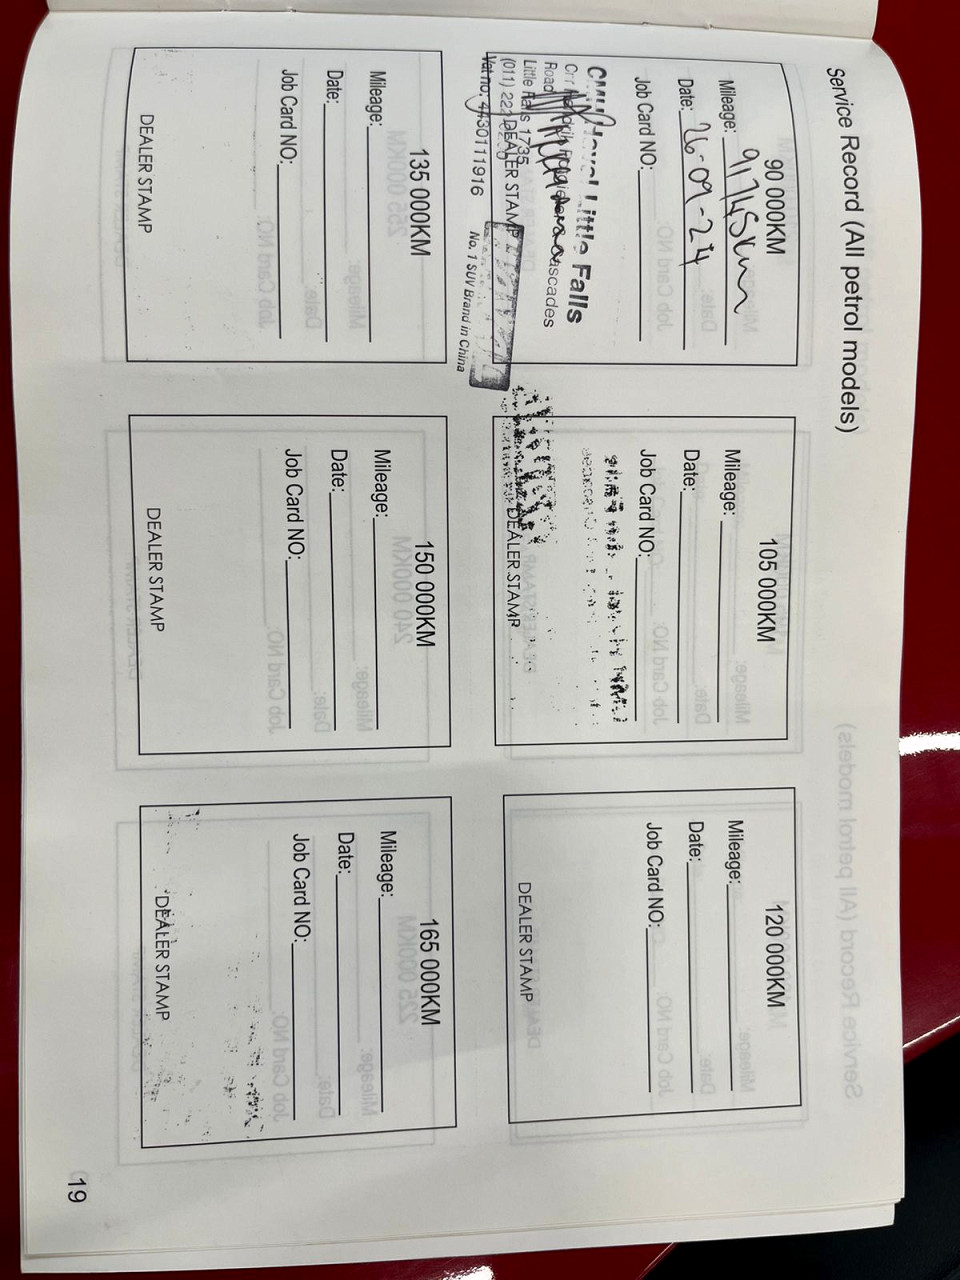 Service Record (All petrol models)
90 000KM
Mileage: 91745km
Date: 26-09-24
Job Card NO:
Little Falls
Road
Cascades
Little Falls 1735
(011)
DEALER STAMP
Vat no: 4430111916
No.1 SUV Brand in China
105 000KM
Mileage:
Date:
Job Card NO:
DEALER STAMP
120 000KM
Mileage:
Date:
Job Card NO:
DEALER STAMP
135 000KM
Mileage:
Date:
Job Card NO:
DEALER STAMP
150 000KM
Mileage:
Date:
Job Card NO:
DEALER STAMP
165 000KM
Mileage:
Date:
Job Card NO:
DEALER STAMP
19